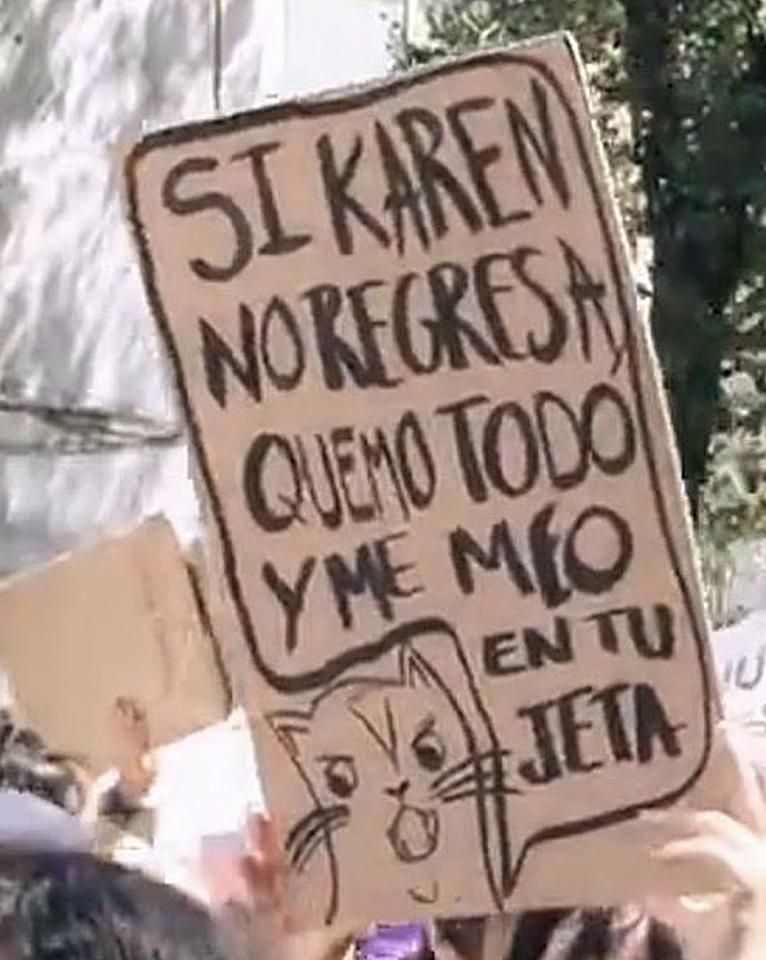 SI KAREN
NO REGRESA,
QUEMO TODO
Y ME MEO
EN TU
JETA